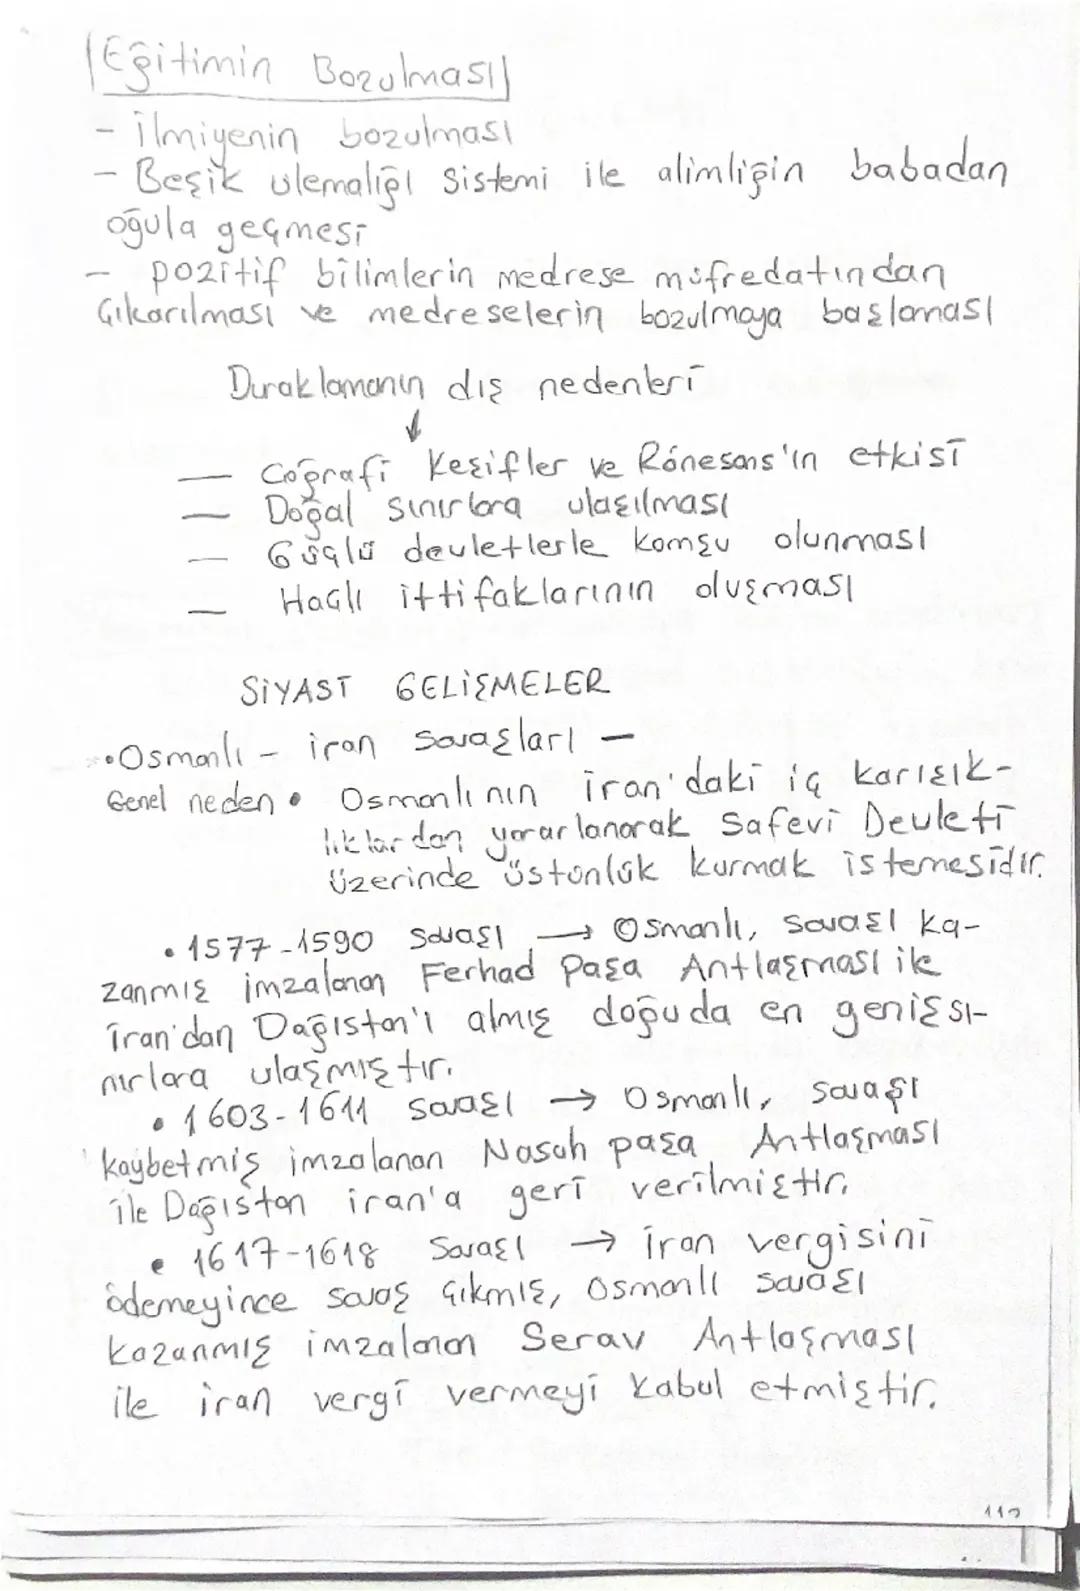 Eğitimin Bozulması
- İlmiyenin bozulması
- Beşik ulemalığı sistemi ile alimliğin babadan
oğula geçmesi
- pozitif bilimlerin medrese müfredatından
çıkarılması ve medreselerin bozulmaya başlaması
Duraklamanın dış nedenleri
↓
— Coğrafi Keşifler ve Rönesans'ın etkisi
— Doğal sınırlara ulaşılması
— Güçlü devletlerle komşu olunması
— Haçlı ittifaklarının oluşması
SİYASİ GELİŞMELER
• Osmanlı - iran savaşları -
Genel neden • Osmanlının İran'daki iç karışık-
lıklardan yararlanarak Safevi Devleti
üzerinde üstünlük kurmak istemesidir.
• 1577-1590 Savaşı → Osmanlı, savaşı ka-
zanmış imzalanan Ferhad Paşa Antlaşması ile
İran'dan Dağıstan'ı almış doğuda en geniş sı-
nırlara ulaşmıştır.
• 1603-1611 Savaşı → Osmanlı, savaşı
kaybetmiş imzalanan Nasuh paşa Antlaşması
ile Dağıstan iran'a geri verilmiştir.
• 1617-1618 Savaşı → İran vergisini
ödemeyince savaş çıkmış, Osmanlı savaşı
kazanmış imzalanan Serav Antlaşması
ile iran vergi vermeyi kabul etmiştir.